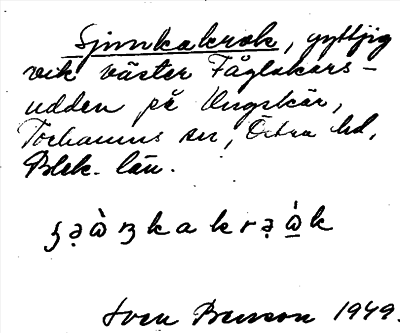 Sjunkakrok, gyttjig
vik väster Fåglakars-
udden på Ungskär,
Torhamns sn, Östra hd,
Blek. län.
kakr k
Sven Benson 1949.